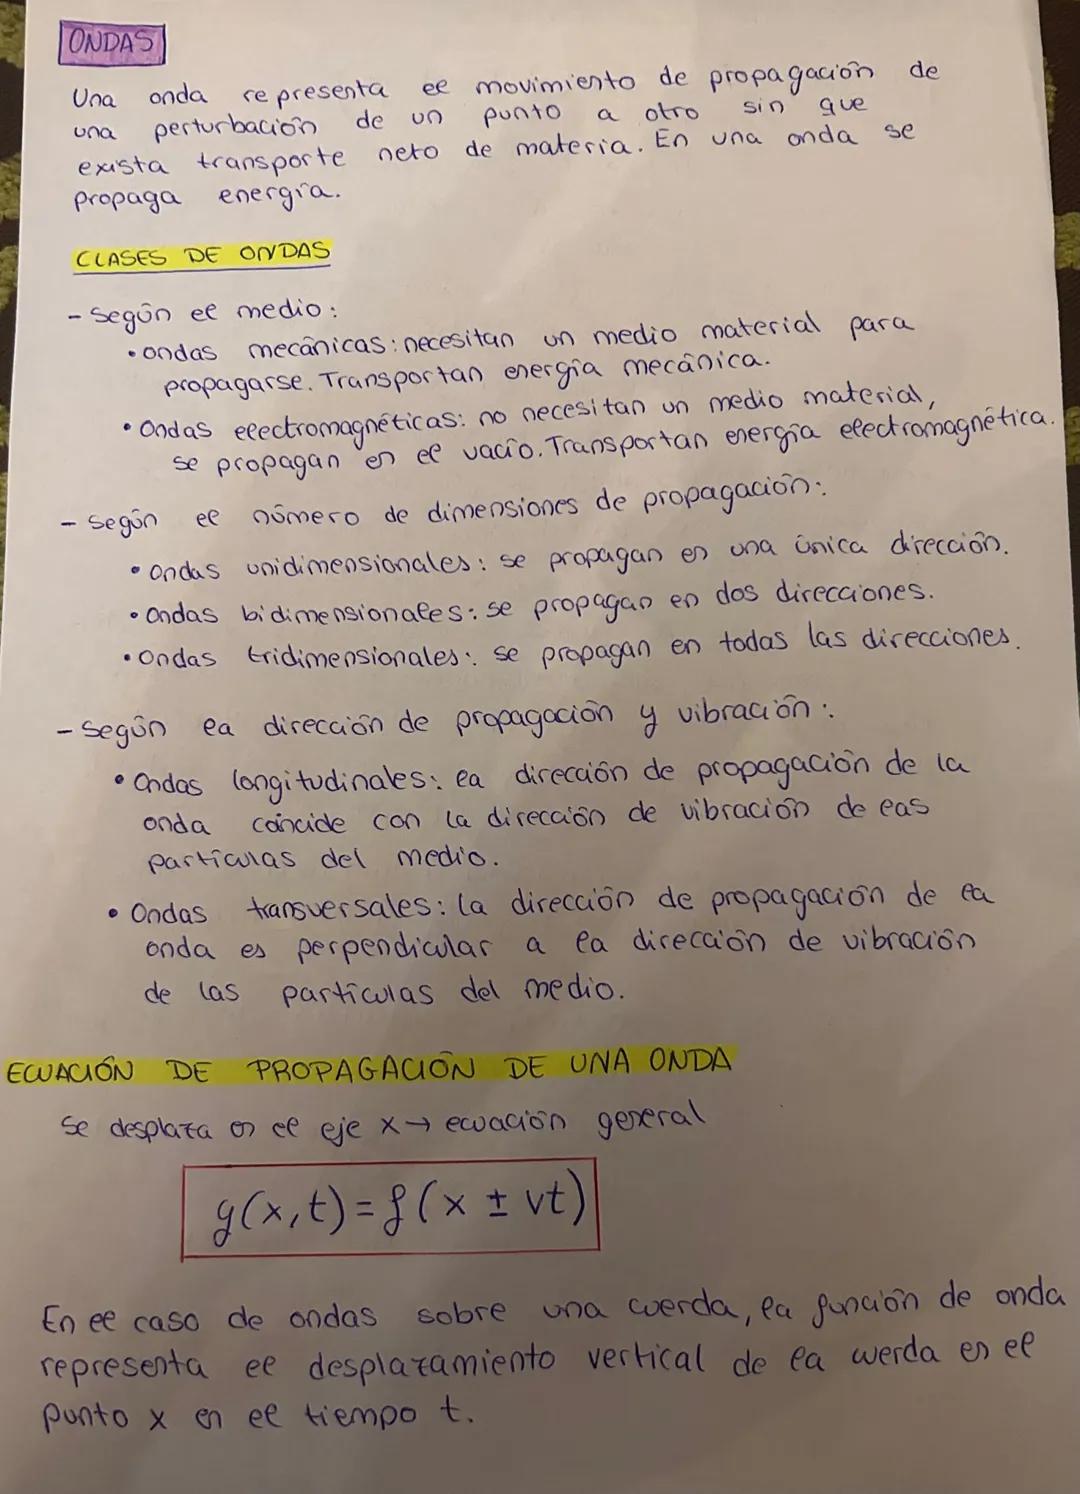 ONDAS
Una onda representa el movimiento de propagación de
una perturbación de un punto a otro sin que
exista transporte neto de materia. En una onda se
propaga energía.
CLASES DE ONDAS
- Según el medio:
• Ondas mecánicas: necesitan un medio material para
propagarse. Transportan energía mecánica.
• Ondas electromagnéticas: no necesitan un medio material,
se propagan en el vacío. Transportan energía electromagnética.
- Según el número de dimensiones de propagación:
• Ondas unidimensionales: se propagan en una única dirección.
• Ondas bidimensionales: se propagan en dos direcciones.
• Ondas tridimensionales: se propagan en todas las direcciones.
- Según la dirección de propagación y vibración:
• Ondas longitudinales: la dirección de propagación de la
onda coincide con la dirección de vibración de las
partículas del medio.
• Ondas transversales: la dirección de propagación de la
onda es perpendicular a la dirección de vibración
de las partículas del medio.
ECUACIÓN DE PROPAGACIÓN DE UNA ONDA
Se desplaza en el eje x → ecuación general
y(x,t) = f(x ± vt)
En el caso de ondas sobre una cuerda, la función de onda
representa el desplazamiento vertical de la cuerda en el
punto x en el tiempo t.